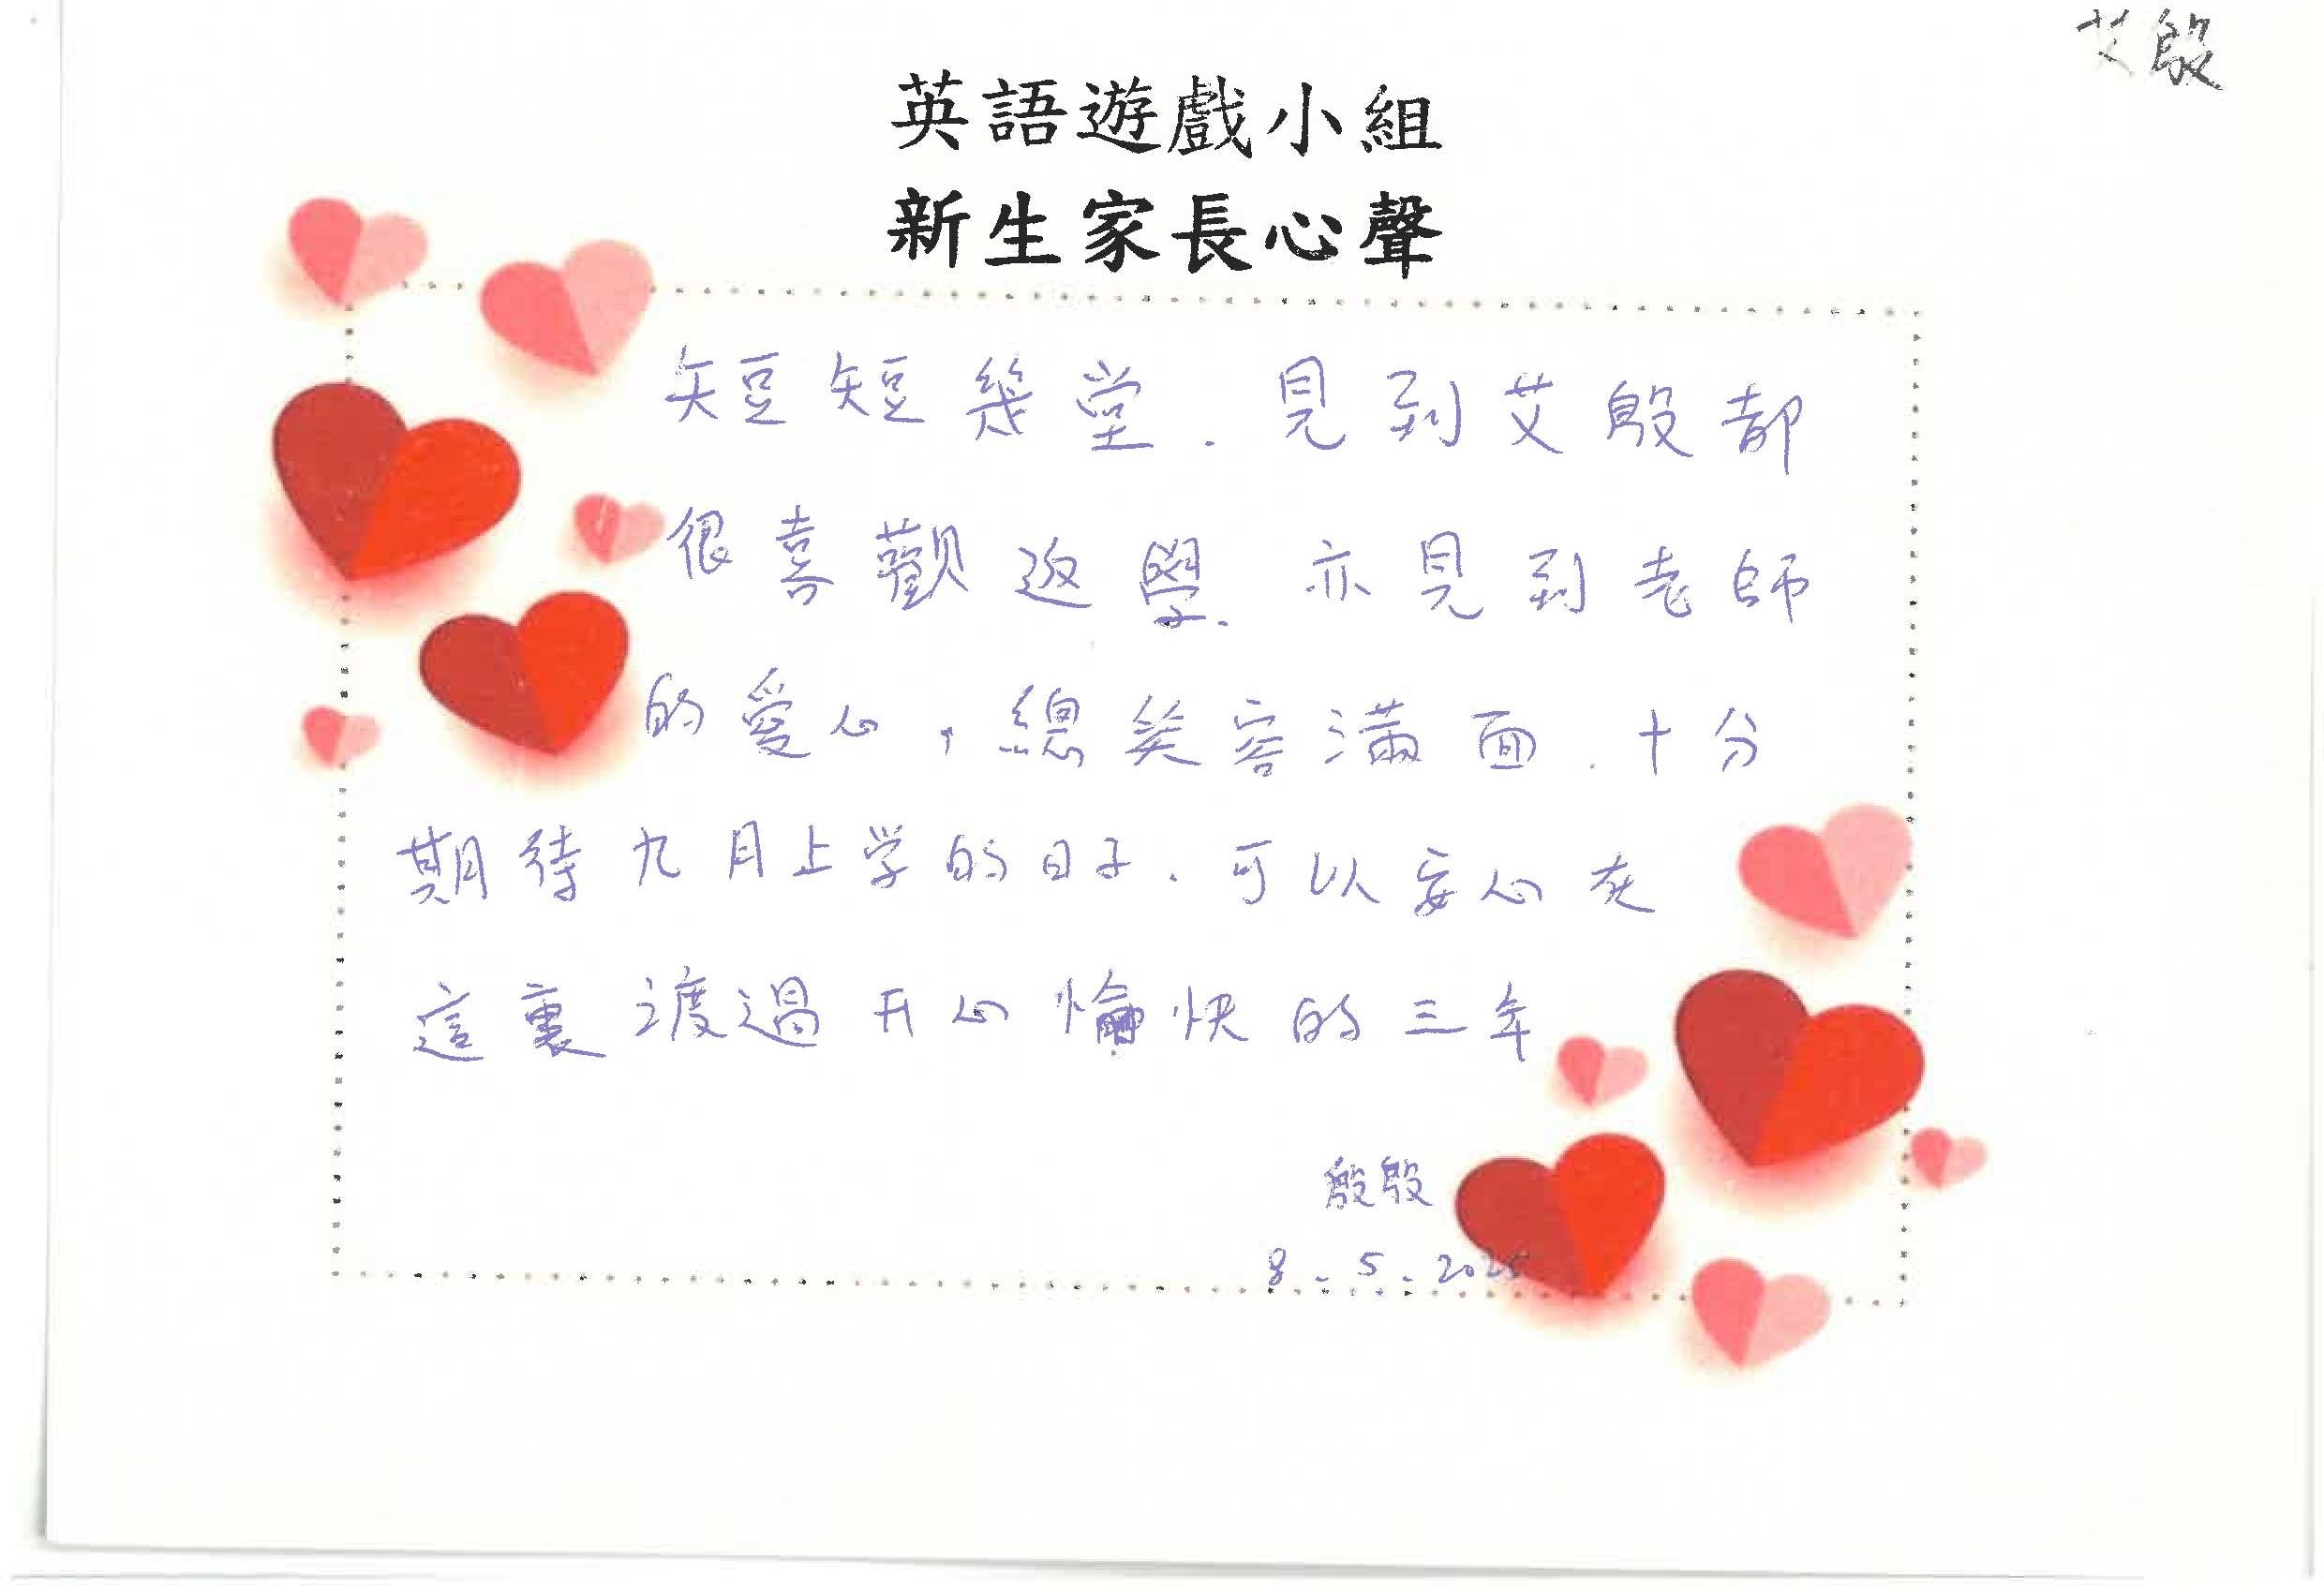 艾殷
英語遊戲小組
新生家長心聲
短短幾堂．見到艾殷都
很喜觀返學．亦見到老師
的愛心，總笑容滿面．十分
期待九月上学的日子．可以安心在
這裏渡過开心愉快的三年
殷殷
8-5-2025